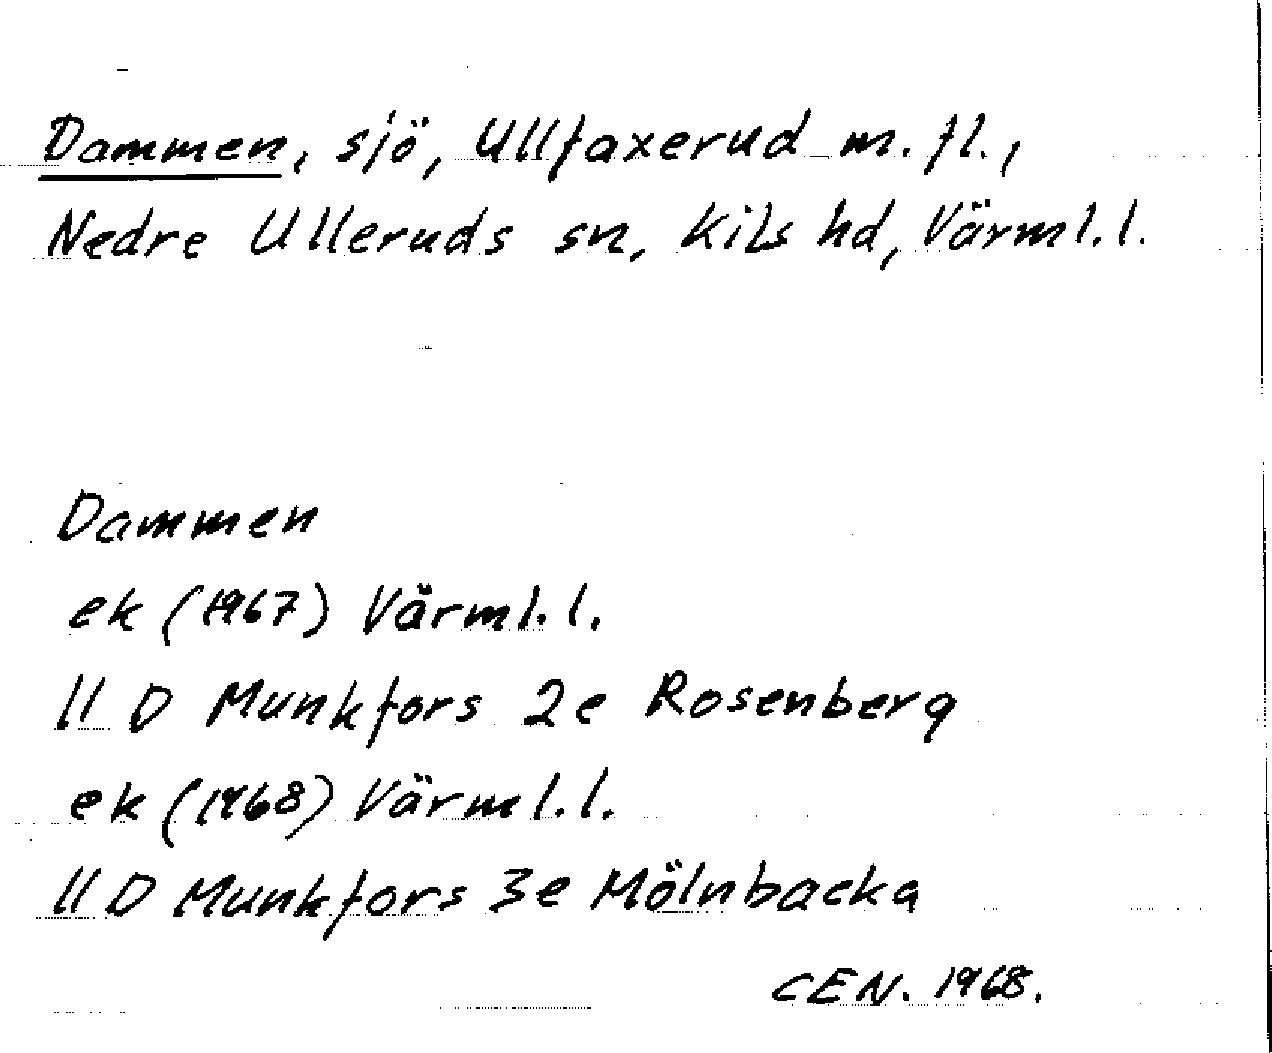 Dammen, sjö, Ullfaxerud m. fl.,
Nedre Ulleruds sn, Kils hd, Värml. l.
Dammen
ek (1967) Värml. l.
11 D Munkfors 2e Rosenberg
ek (1968) Värml. l.
11 D Munkfors 3e Mölnbacka
CEN. 1968.